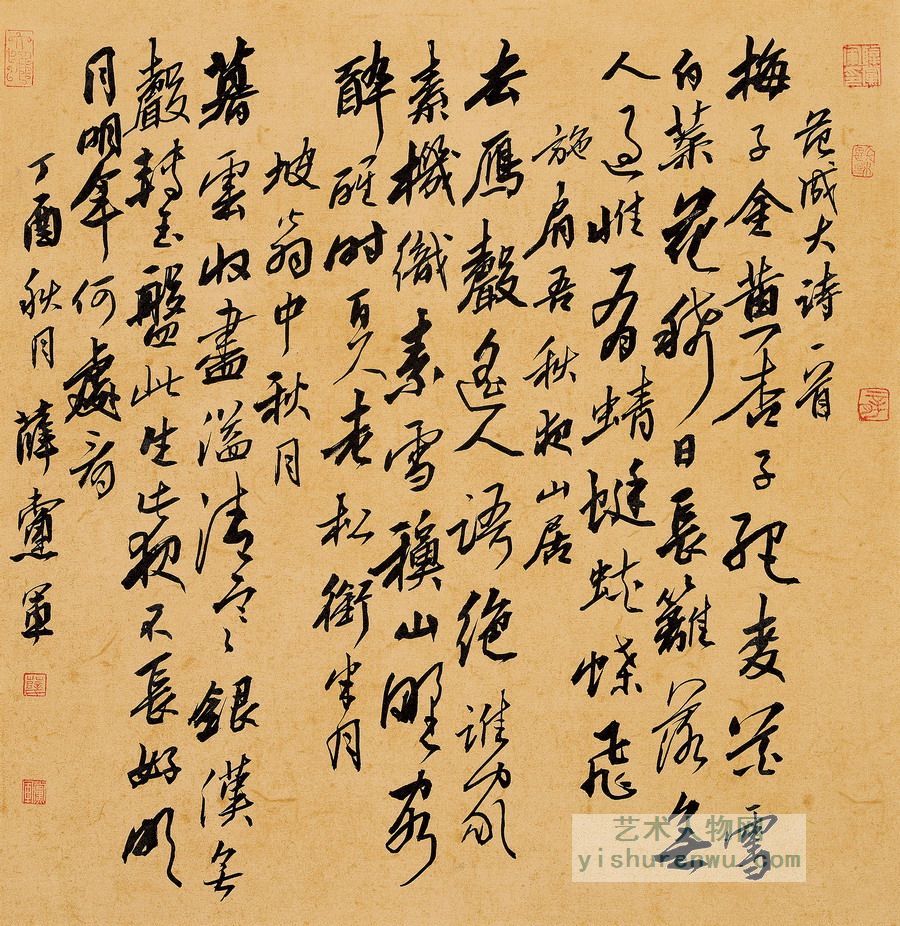 范成大詩一首
梅子金黄杏子肥麥花雪
白菜花稀日長籬落無
人過惟有蜻蜓蛱蝶飛
施肩吾秋夜山居
去雁聲遥人語絕誰家
素機織素雪穐山野客
醉醒時百尺老松銜半月
坡翁中秋月
暮雲收盡溢清寒銀漢無
聲轉玉盤此生此夜不長好明
月明年何處看
丁酉秋月薛黨軍
艺术人物网
yishurenwu.com